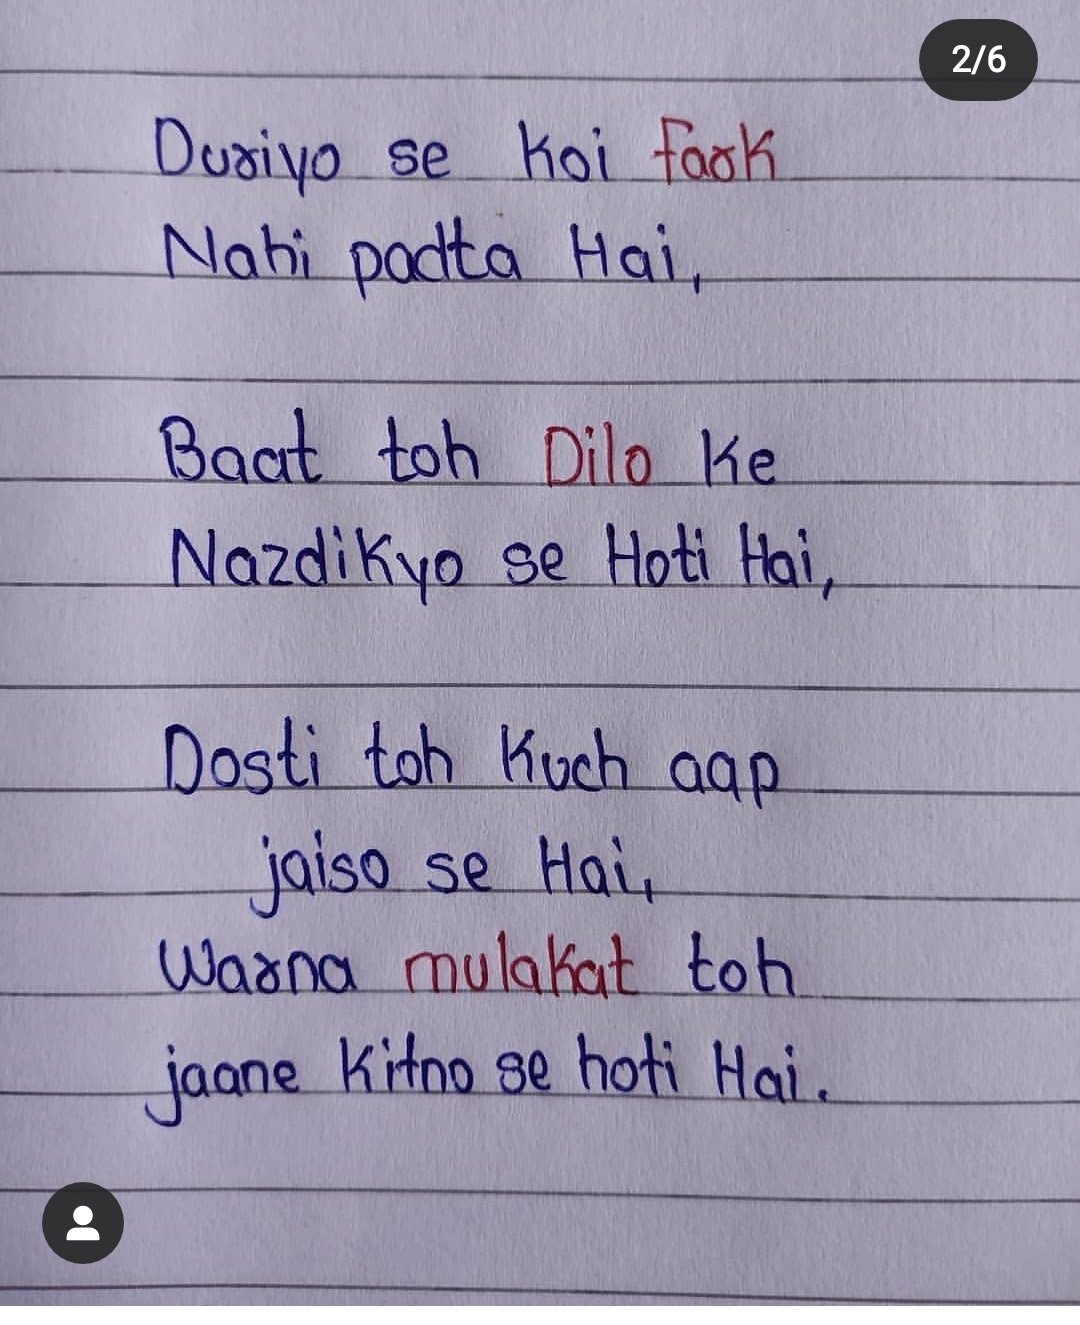 2/6
Duriyo se koi fark
Nahi padta Hai,
Baat toh Dilo Ke
Nazdikyo se Hoti Hai,
Dosti toh Kuch aap
jaiso se Hai,
Warna mulakat toh
jaane Kitno se hoti Hai.